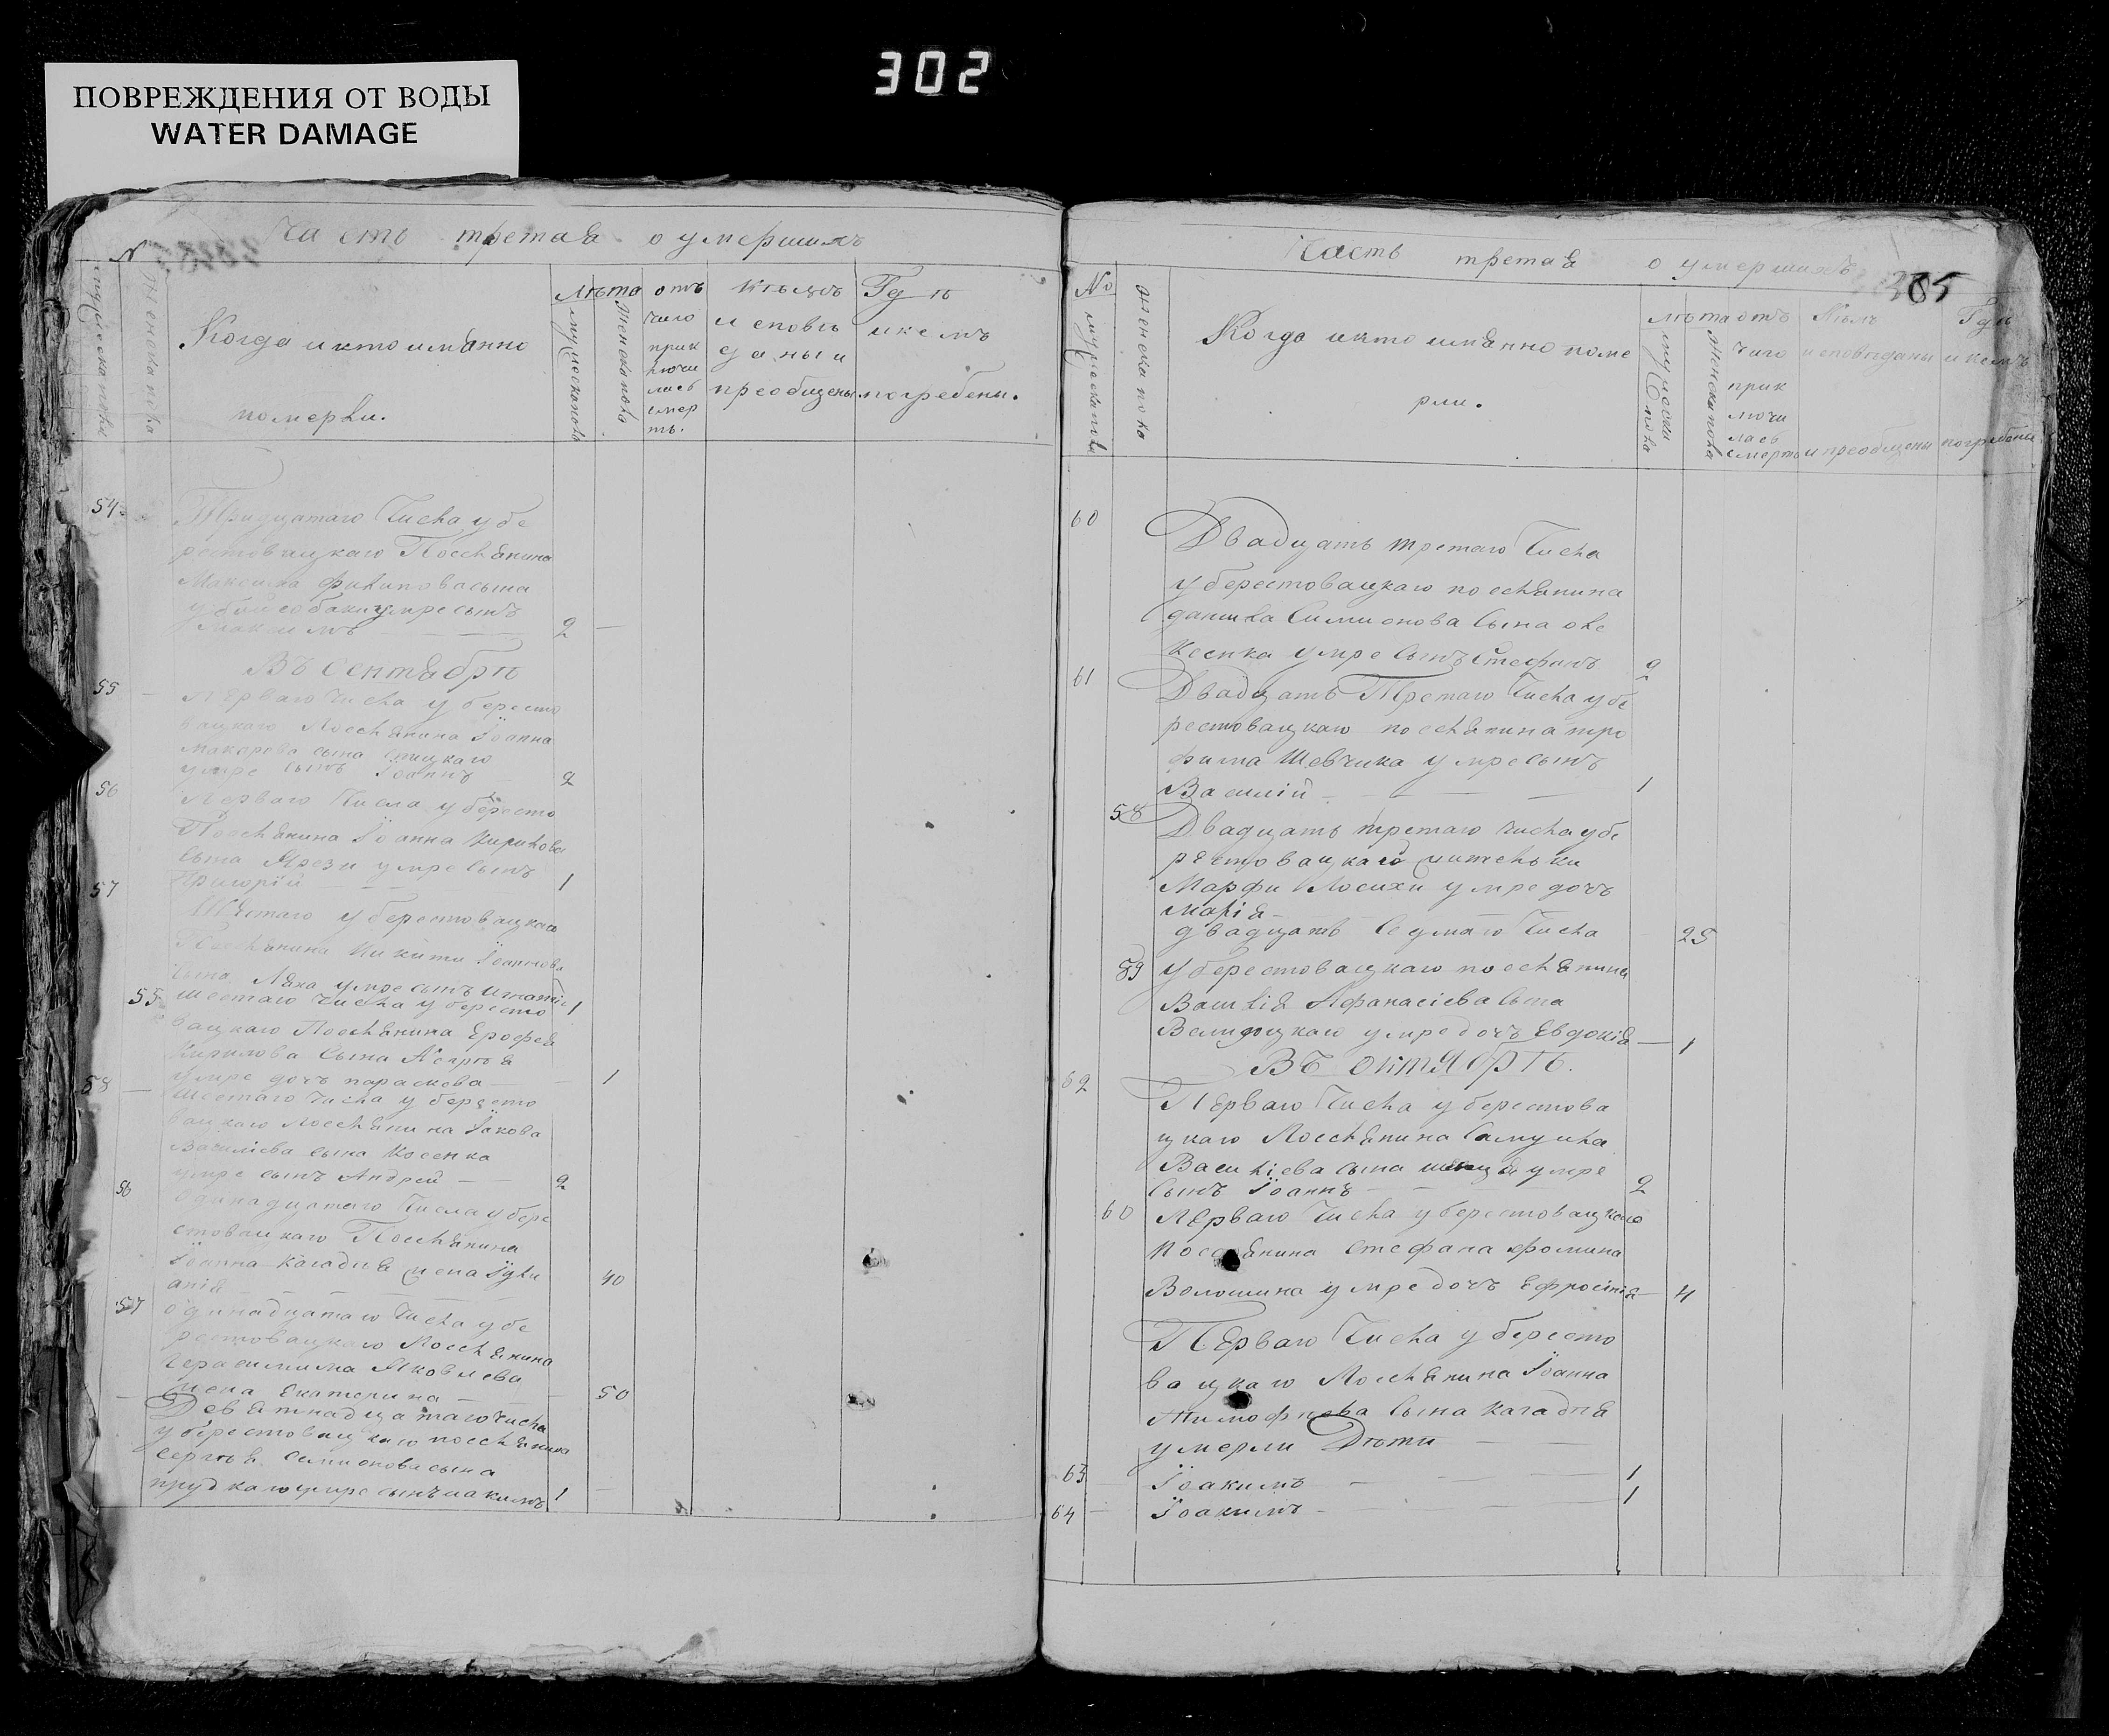 302
ПОВРЕЖДЕНИЯ ОТ ВОДЫ
WATER DAMAGE
Часть третая о умершихъ
N
Когда и кто имянно
померли.
Лѣта
мужеска пола
женска пола
отъ
чего
прик
лючи
лась
смер
ть.
Кѣмъ
исповѣ
даны и
преобщены
Гдѣ
и кемъ
погребены.
54
Тридцатаго Числа у бе
рестовацкаго Поселянина
Максима филипова сына
умре сынъ
Максимъ 2
Въ сентябрѣ
55
Перваго числа у бересто
вацкаго Поселянина Іоанна
Макарова сына
умре сынъ Іоаннъ 2
56
Перваго Числа у бересто
Поселянина Іоанна Кирилова
сына умре сынъ
Григорій 1
57
Шестаго у берестовацкаго
Поселянина Никити Іоаннова
сына Ляха умре сынъ Игнатій 1
55
шестаго числа у бересто
вацкаго Поселянина Ерофея
Кирилова сына
умре дочь параскева 1
58
шестаго числа у бересто
вацкаго Поселянина Іакова
Василіева сына Косенка
умре сынъ Андрей 2
56
Одинадцатаго Числа у бере
стовацкаго Поселянина
Іоанна Каладня жена Іули
анія 40
57
одинадцатаго Числа у бе
рестовацкаго Поселянина
Герасимима Яковлева
жена Екатерина 50
Девятнадцатаго числа
у берестовацкаго поселянина
Сергѣя Симионова сына
прудкаго умре сынъ иакимъ 1
Часть третая о умершихъ
305
No
мужеска пола
женска пола
Когда и кто имянно поме
рли.
лѣта
мужеска пола
женска пола
отъ
чего
прик
лючи
лась
смерть
Кѣмъ
исповѣданы
и преобщены
Гдѣ
и кемъ
погребены
60
Двадцать третаго Числа
у берестовацкаго поселянина
данила Симионова Сына оле
ксенка умре Сынъ Стефанъ 2
61
Двадцать Третаго Числа у бе
рестовацкаго поселянина тро
фима Шевчика умре сынъ
Василій 1
58
Двадцать третаго числа у бе
рестовацкаго жительки
Марфи Лосихи умре дочь
Марія 25
двадцать Седмаго Числа
59
у берестовацкаго поселянина
Василія Афанасіева Сына
Велицкаго умре дочь Евдокія 1
Въ октябрѣ.
62
Перваго Числа у берестова
цкаго Поселянина Самуила
Василіева сына умре
Сынъ Іоаннъ 2
60
Перваго Числа у берестовацкаго
Поселянина Стефана фомина
Волошина умре дочь Ефросинія 4
Перваго Числа у бересто
вацкаго Поселянина Іоанна
Тимофѣева Сына Каладня
умерли Дѣти
63
Іоакимъ 1
64
Іоакимъ 1